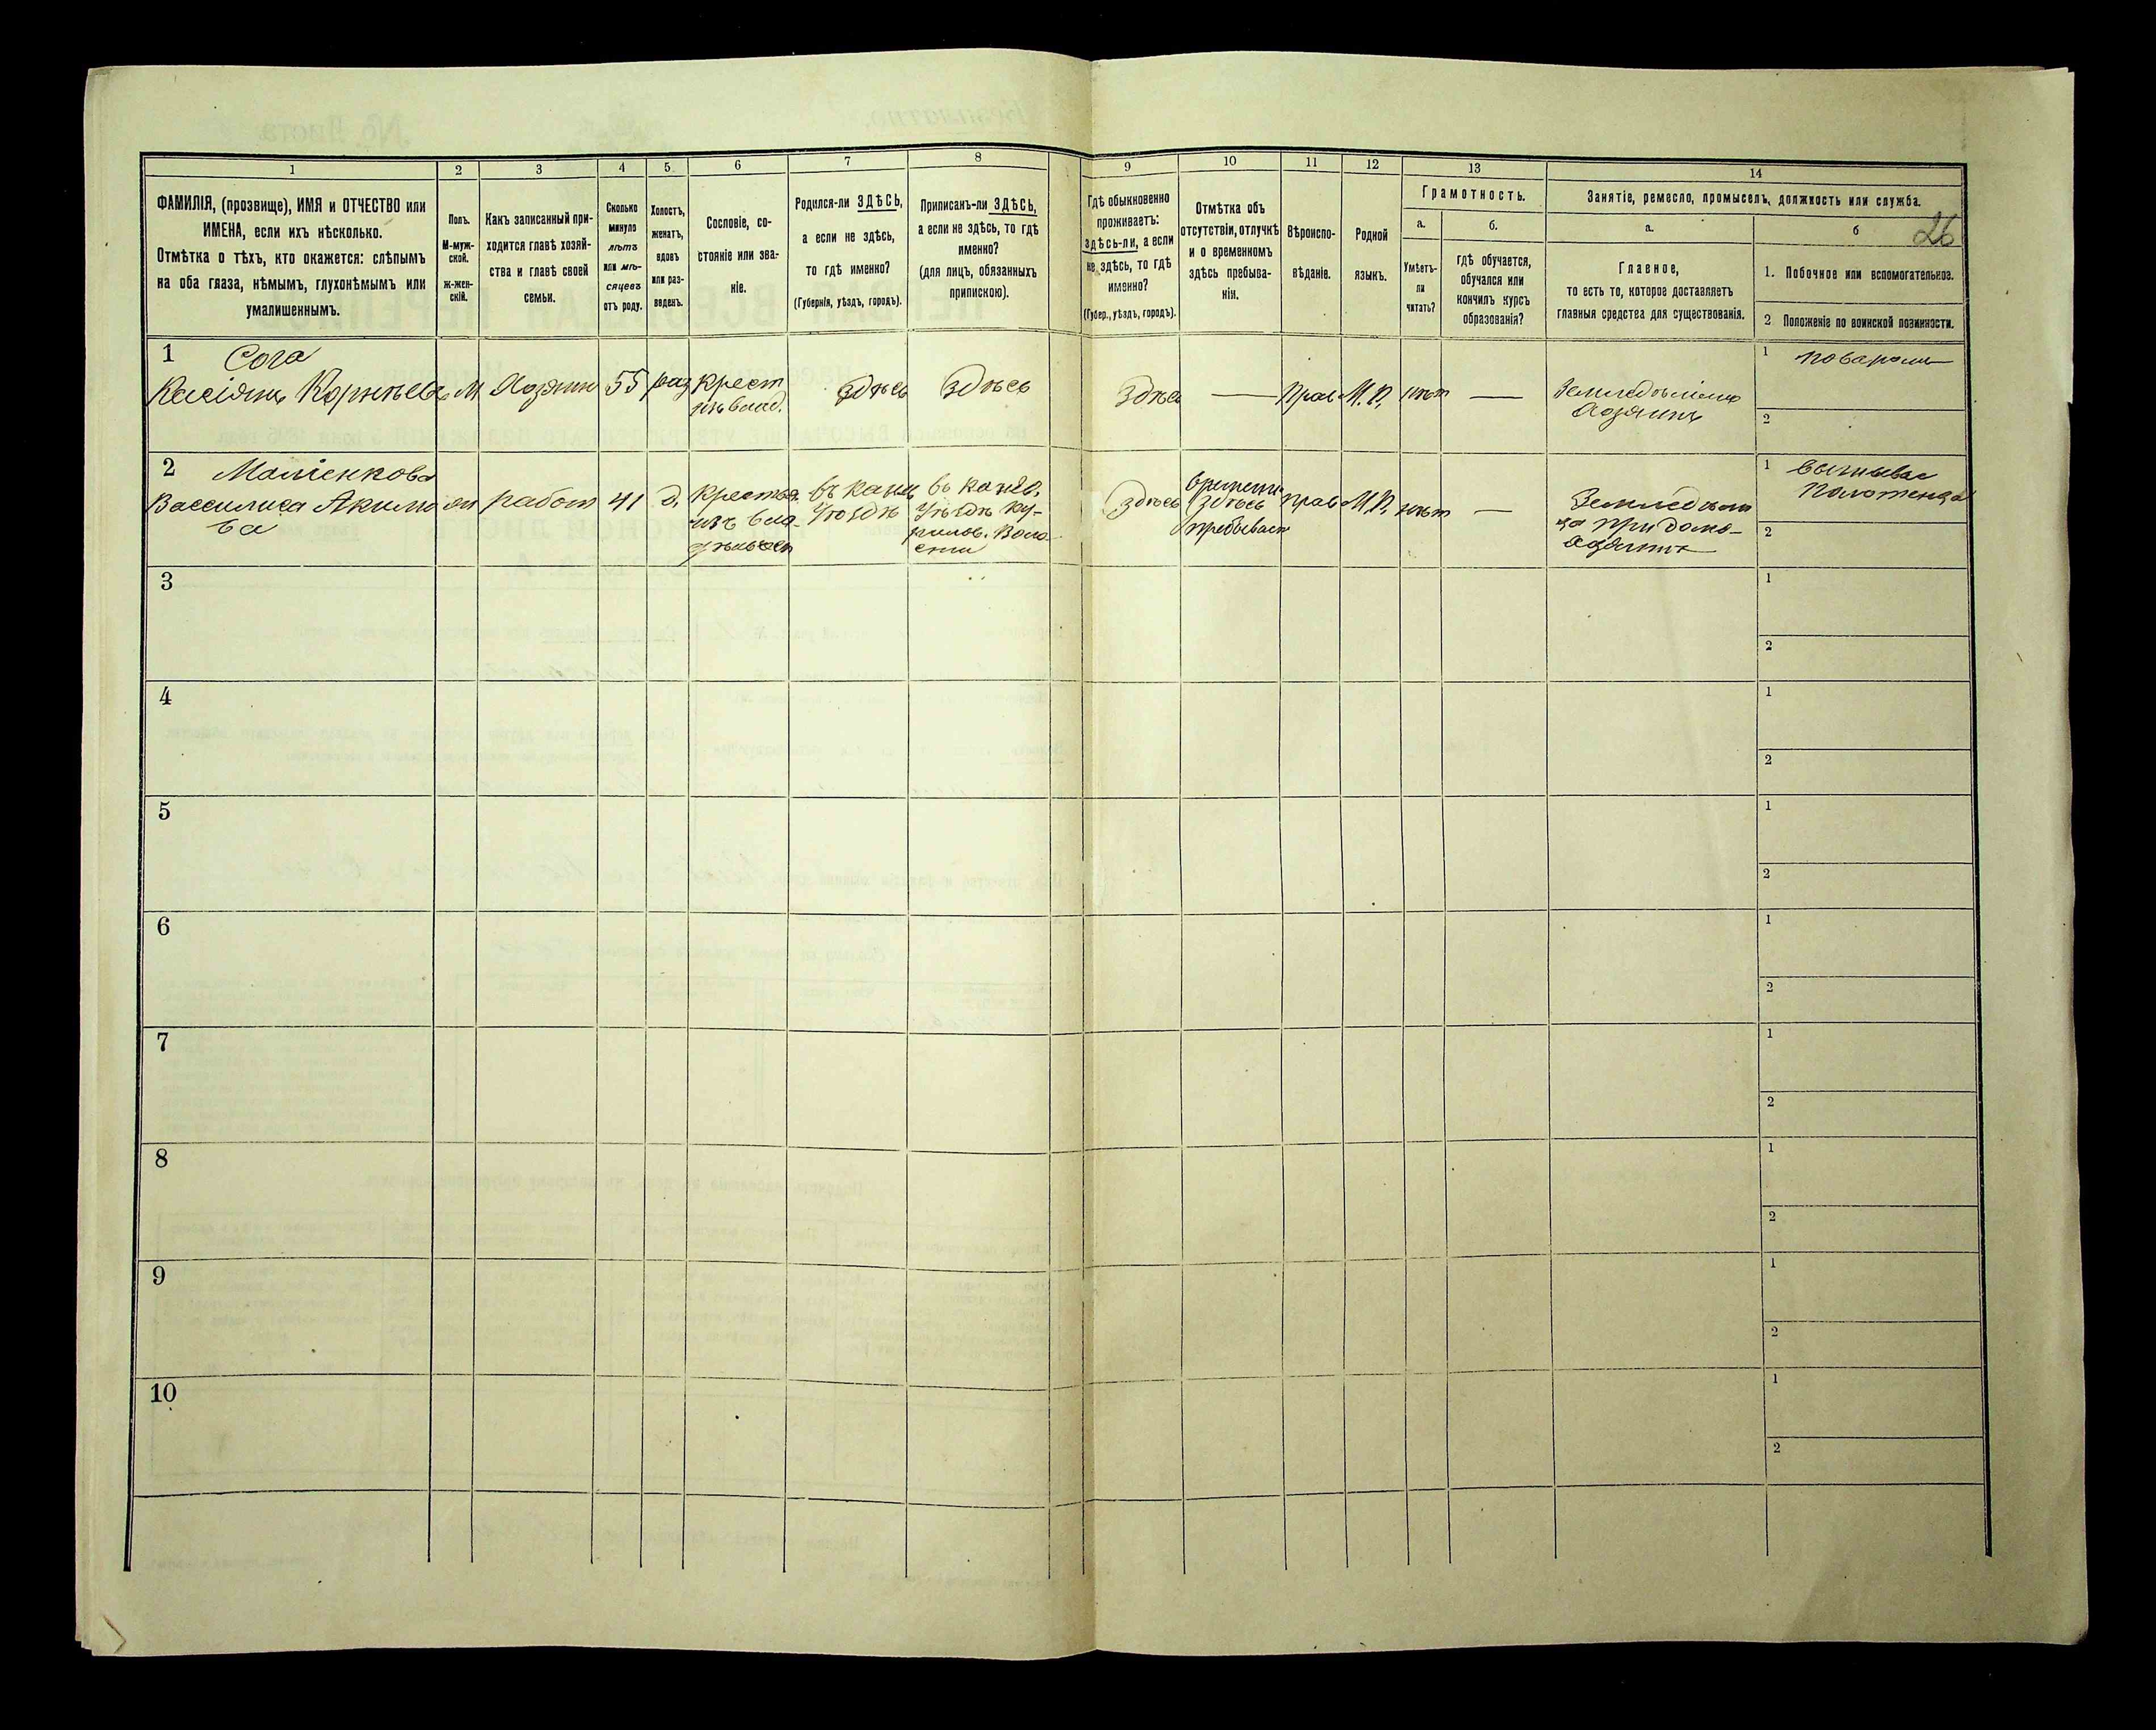 1 2 3 4 5. 6 7 8 9 10 11 12 13 14
ФАМИЛІЯ, (прозвище), ИМЯ и ОТЧЕСТВО или
ИМЕНА, если ихъ нѣсколько.
Отмѣтка о тѣхъ, кто окажется: слѣпымъ
на оба глаза, нѣмымъ, глухонѣмымъ или
умалишеннымъ.
Полъ.
М-муж-
ской.
ж-жен-
скій.
Какъ записанный при-
ходится главѣ хозяй-
ства и главѣ своей
семьи.
Сколько
минуло
лѣтъ
или мѣ-
сяцевъ
отъ роду.
Холостъ,
женатъ,
вдовъ
или раз-
веденъ.
Сословіе, со-
стояніе или зва-
ніе.
Родился-ли ЗДѢСЬ,
а если не здѣсь,
то гдѣ именно?
(Губернія, уѣздъ, городъ).
Приписанъ-ли ЗДѢСЬ,
а если не здѣсь, то гдѣ
именно?
(для лицъ, обязанныхъ
припискою).
Гдѣ обыкновенно
проживаетъ:
здѣсь-ли, а если
не здѣсь, то гдѣ
именно?
(Губер., уѣздъ, городъ).
Отмѣтка объ
отсутствіи, отлучкѣ
и о временномъ
здѣсь пребыва-
ніи.
Вѣроиспо-
вѣданіе.
Родной
языкъ.
Грамотность.
а.
Умѣетъ-
ли
читать?
б.
гдѣ обучается,
обучался или
кончилъ курсъ
образованія?
Занятіе, ремесло, промыселъ, должность или служба.
а.
Главное,
то есть то, которое доставляетъ
главныя средства для существованія.
б
26
1. Побочное или вспомогательное.
2 Положеніе по воинской повинности.
1 Сога
Касіянъ Корнѣевъ М Хозяинъ 55 раз крест
изъ влад.
здѣсь
здѣсь
Здѣсь
—
Прав
М.Р.
нѣтъ
—
Хозяинъ
1 поваромъ
2
2
Василиса Акимо
ва
работ
41
д.
крестья
изъ вла-
дѣльческ
въ канев
уѣздѣ
въ канев.
уѣздѣ
здѣсь
времени
здѣсь
пребывает
прав
М.Р.
нѣтъ
—
при домо-
хозяинѣ
1 вышывае
Полотенца
2
3 1
2
4 1
2
5 1
2
6 1
2
7 1
2
8 1
2
9 1
2
10 1
2